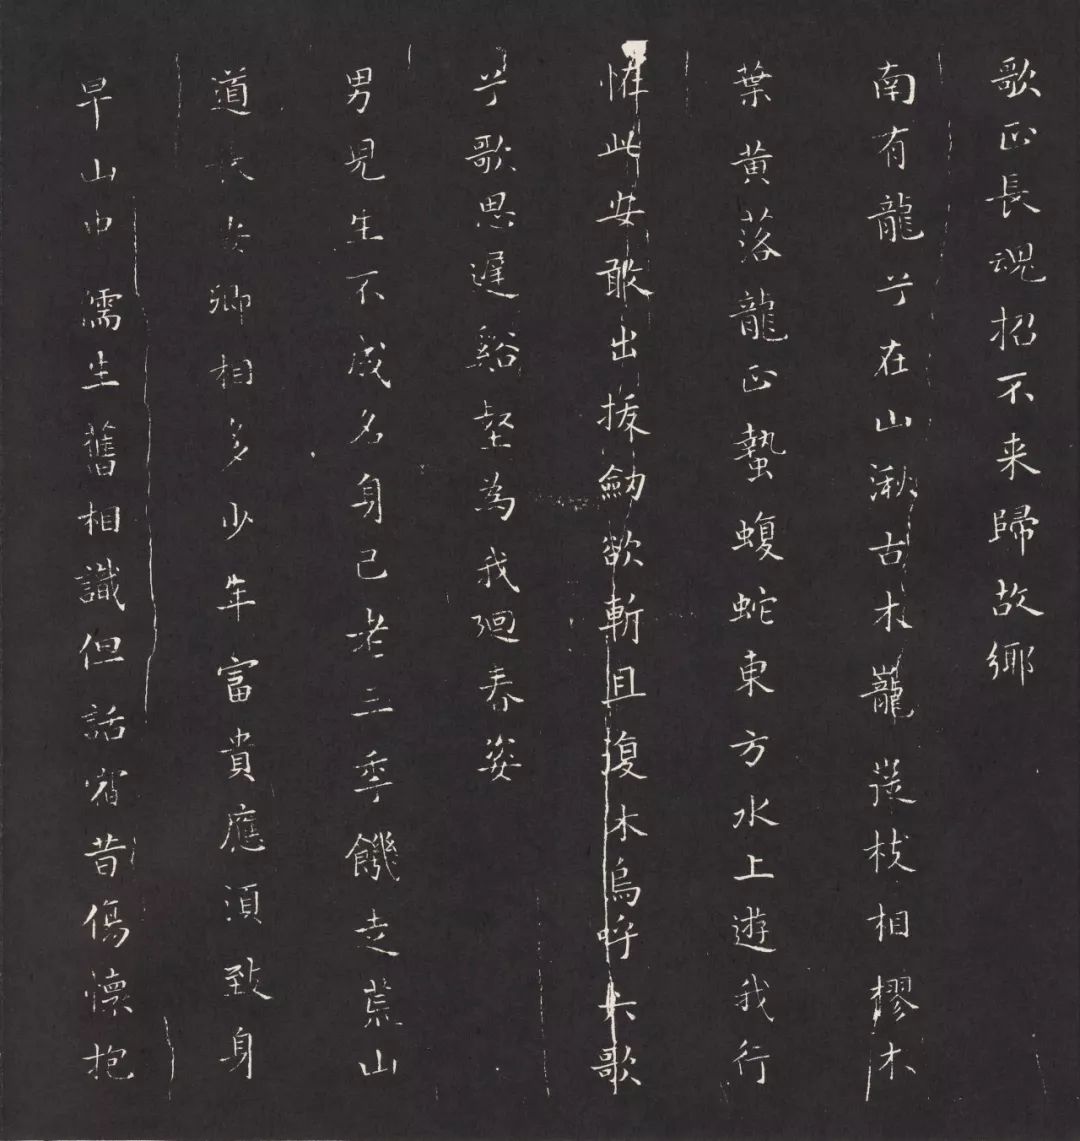 歌正長魂招不来歸故鄉
南有龍兮在山湫古木巃嵷枝相樛木
葉黄落龍正蟄蝮蛇東方水上遊我行
恠此安敢出拔劒欲斬且復休嗚呼六歌
兮歌思遲谿壑為我迴春姿
男兒生不成名身已老三秊饑走荒山
道長安卿相多少年富貴應須致身
早山中儒生舊相識但話宿昔傷懷抱